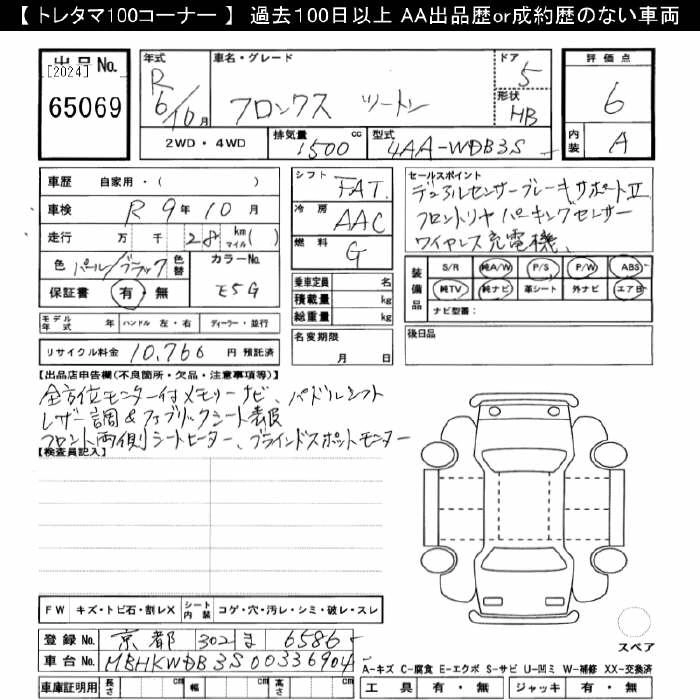 【 トレタマ100コーナー 】 過去100日以上 AA出品歴or成約歴のない車両
出品No.
[2024]
65069
年式 R 6/10月
車名・グレード フロンクス ツートン
ドア 5
形状 HB
評価点 6
内装 A
2WD・4WD
排気量 1500 cc
型式 4AA-WDB3S
車歴 自家用・( )
車検 R 9年 10月
走行 万 千 28 km マイル ( )
色 パール/ブラック 色替
カラーNo. E5G
保証書 有・無
モデル年式 年 ハンドル 左・右 ディーラー・並行
リサイクル料金 10,766 円 預託済
シフト FAT.
冷房 AAC
燃料 G
乗車定員 名
積載量 kg
総重量 kg
名変期限 月 日
セールスポイント
デュアルセンサーブレーキサポートII
フロントリヤパーキングセンサー
ワイヤレス充電機、
装備品 S/R 純A/W P/S P/W ABS
純TV 純ナビ 革シート 外ナビ エアB
ナビ型番:
後日品
【出品店申告欄(不良箇所・欠品・注意事項等)】
全方位モニター付メモリーナビ、パドルシフト
レザー調&ファブリックシート表皮
フロント両側シートヒーター、ブラインドスポットモニター
【検査員記入】
FW キズ・トビ石・割レX シート内装 コゲ・穴・汚レ・シミ・破レ・スレ
登録No. 京都 302 ま 6586
車台No. MBHKWDB3S00336904
車庫証明用 長さ cm 幅 cm 高さ cm
スペア
A-キズ C-腐食 E-エクボ S-サビ U-凹ミ W-補修 XX-交換済
工具 有・無 ジャッキ 有・無